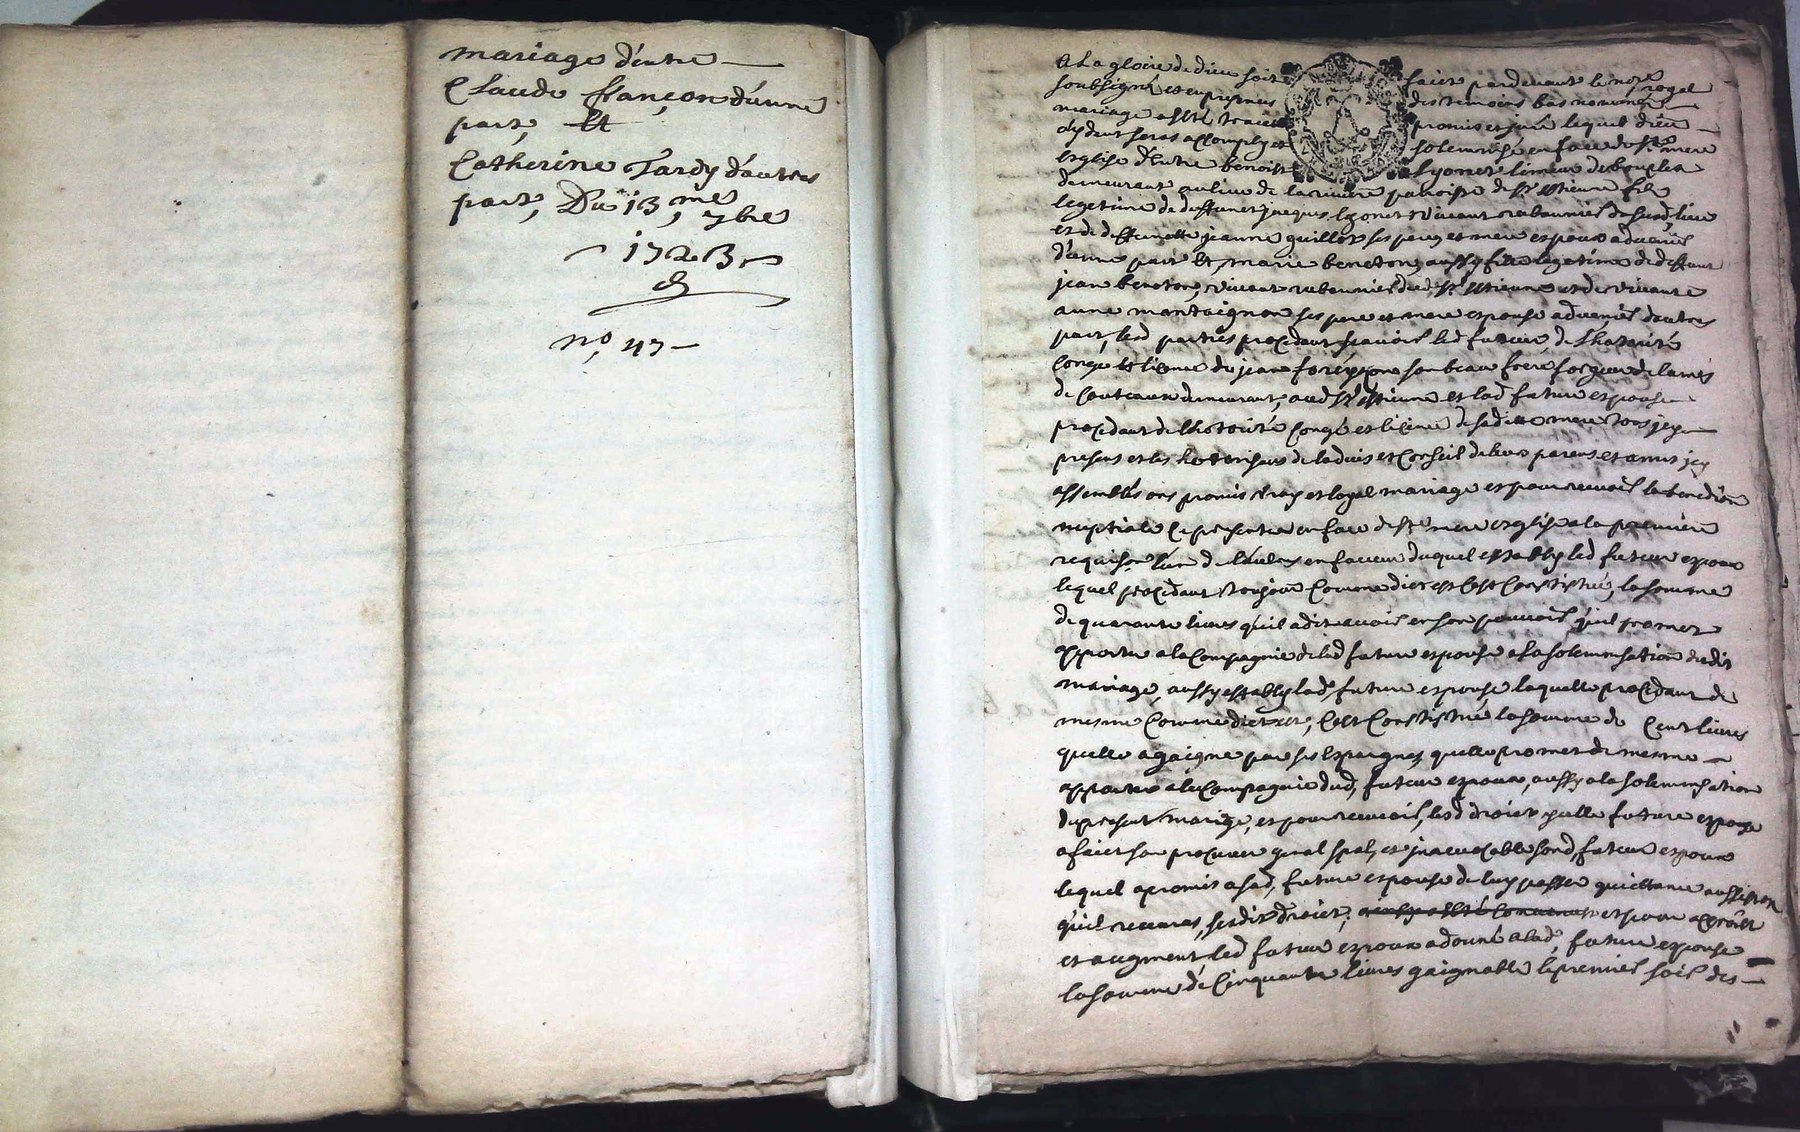 mariage d'entre
Claude françon d'une
part, Et
Catherine Tardy d'autres
part, Du 13,me 7bre
1723
no, 47
A La gloire de dieu soit faict pardevant le nore royal
soubsigné et en presances des temoins bas nommés
mariage a esté traicté promis et juré lequel dieu
aydant sera accomply et solemnisé en face de ste mere
Esglise Entre benoist Lyonet limeur de boucles
demeurant au lieu de la riviere paroisse de st Estienne fils
legetime de deffunct jacques lyonet vivant rubannier dud lieu
et de deffunctte jeanne guillot ses pere et mere espoux advenir
d'une part Et marie beneton, aussy fille legetime de deffunt
jean beneton, vivant rubannier dud st Estienne et de vivante
anne montaignon ses pere et mere espouse advenir d'autres
part, lesd parties procedant scavoir led futeur, de Lhotorité
Congé et licence de jean son beau frere forgeur de lames
de Couteaux demeurant, aud st Estienne et lad future espouse
procedant de lhotorité Congé et licence de sadite mere tous jcy
presens et les hotorisans de ladvis et Conseil de leurs parens et amis jcy
assemblés ont promis vray et loyal mariage et pour recevoir la benedion
nuptiale se presenter en face de ste mere esglise a la premiere
requison lun de lautre en faveur duquel establyt led futeur espoux
lequel procedant toujour Comme dict est Cest Constistué, la somme
de quarante livres qu'il a dit avoir en son pouvoir qu'il promet
apporter a la Compagnie de lad future espouse a la solemnisation dudit
mariage, aussy establyt lad future espouse laquelle procedant de
mesme Comme dict est, Cest Constistué la somme de Cent livres
quelle a gaigné par ses Espargnes quelle promet de mesme
apporter a la Compagnie dud, futeur espoux, aussy a la solemnisation
du present mariage, et pour recevoir, lesd droict jcelle future espouse
a faict son procureur gnal spal, et jrrevocable sond, futeur espoux
lequel a promis a sad, future espouse de luy passer quictance aussi tost
qu'il recevra, sesdit droict, et pour accroist
et augment led futeur espoux a donné a lad, future espouse
la somme de Cinquante livres gaignable le premier soit des